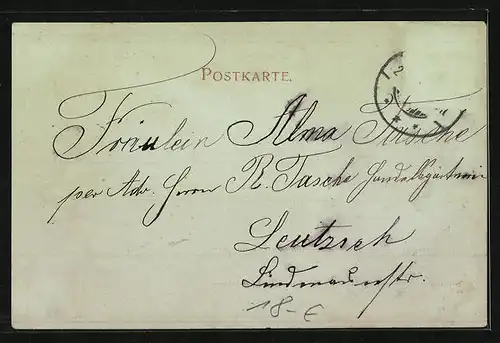 POSTKARTE.
2
Fräulein Alma Tasche
per Adr. Herrn R. Tasche Handelsgärtnerei
Leutzsch
Lindenauerstr.
18-€